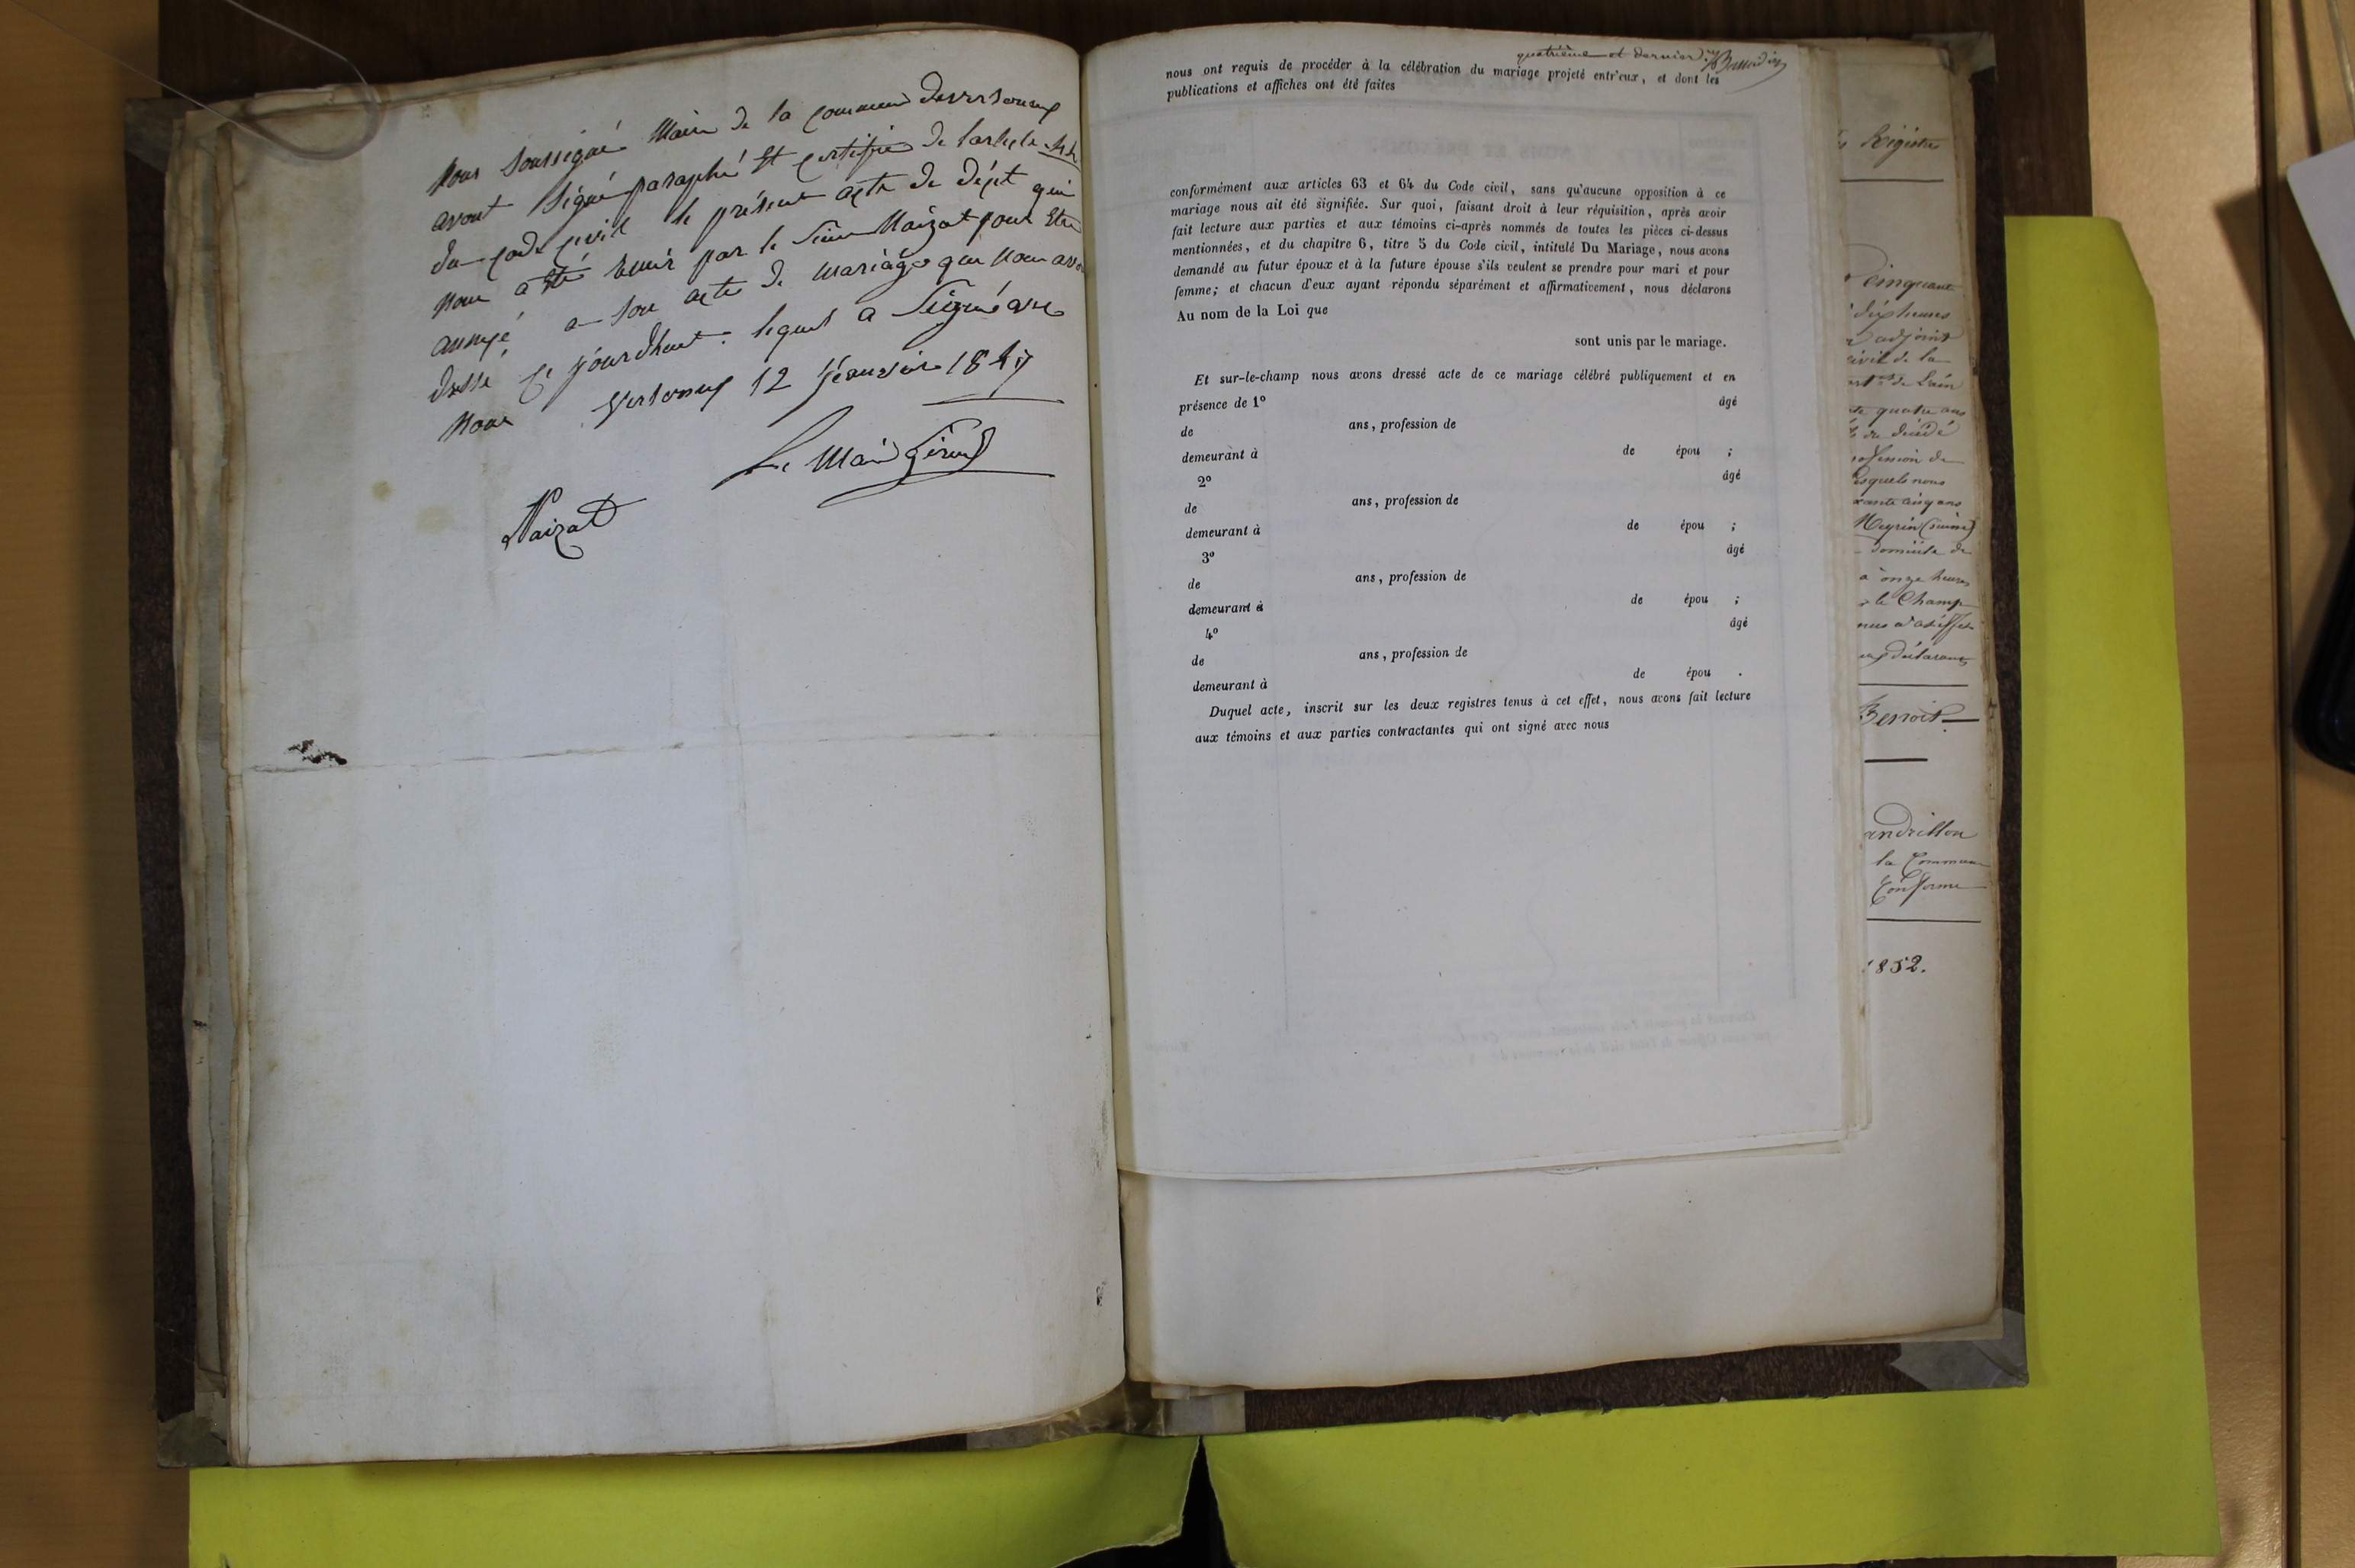 Nous soussigné Maire de la commune de versonnex
avont signé paraphé Et certifié de larticle 44
du code civil le présent acte de dépt qui
nous a été remis par le Sieur Naizot pour Etre
annexé a son acte de mariage que nous avons
dressé ce jourdhuit lequel a Signé avec
nous versonnex 12 Jeanvier 1847
Le Maire Girod
Naizot
quatrième et dernier
nous ont requis de procéder à la célébration du mariage projeté entr'eux, et dont les
publications et affiches ont été faites
conformément aux articles 63 et 64 du Code civil, sans qu'aucune opposition à ce
mariage nous ait été signifiée. Sur quoi, faisant droit à leur réquisition, après avoir
fait lecture aux parties et aux témoins ci-après nommés de toutes les pièces ci-dessus
mentionnées, et du chapitre 6, titre 5 du Code civil, intitulé Du Mariage, nous avons
demandé au futur époux et à la future épouse s'ils veulent se prendre pour mari et pour
femme; et chacun d'eux ayant répondu séparément et affirmativement, nous déclarons
Au nom de la Loi que
sont unis par le mariage.
Et sur-le-champ nous avons dressé acte de ce mariage célébré publiquement et en
présence de 1º âgé
de ans, profession de
demeurant à de épou ;
2º âgé
de ans, profession de
demeurant à de épou ;
3º âgé
de ans, profession de
demeurant à de épou ;
4º âgé
de ans, profession de
demeurant à de épou .
Duquel acte, inscrit sur les deux registres tenus à cet effet, nous avons fait lecture
aux témoins et aux parties contractantes qui ont signé avec nous
Régistre
Cinquante
dix heures
adjoint
civil de la
de l'ain
quatre ans
décédé
profession de
lesquels nous
cinq ans
Meyrin (suisse)
domicile de
à onze heures
le Champ
déclarans
Benoit
andrillon
la Commune
Conforme
1852.